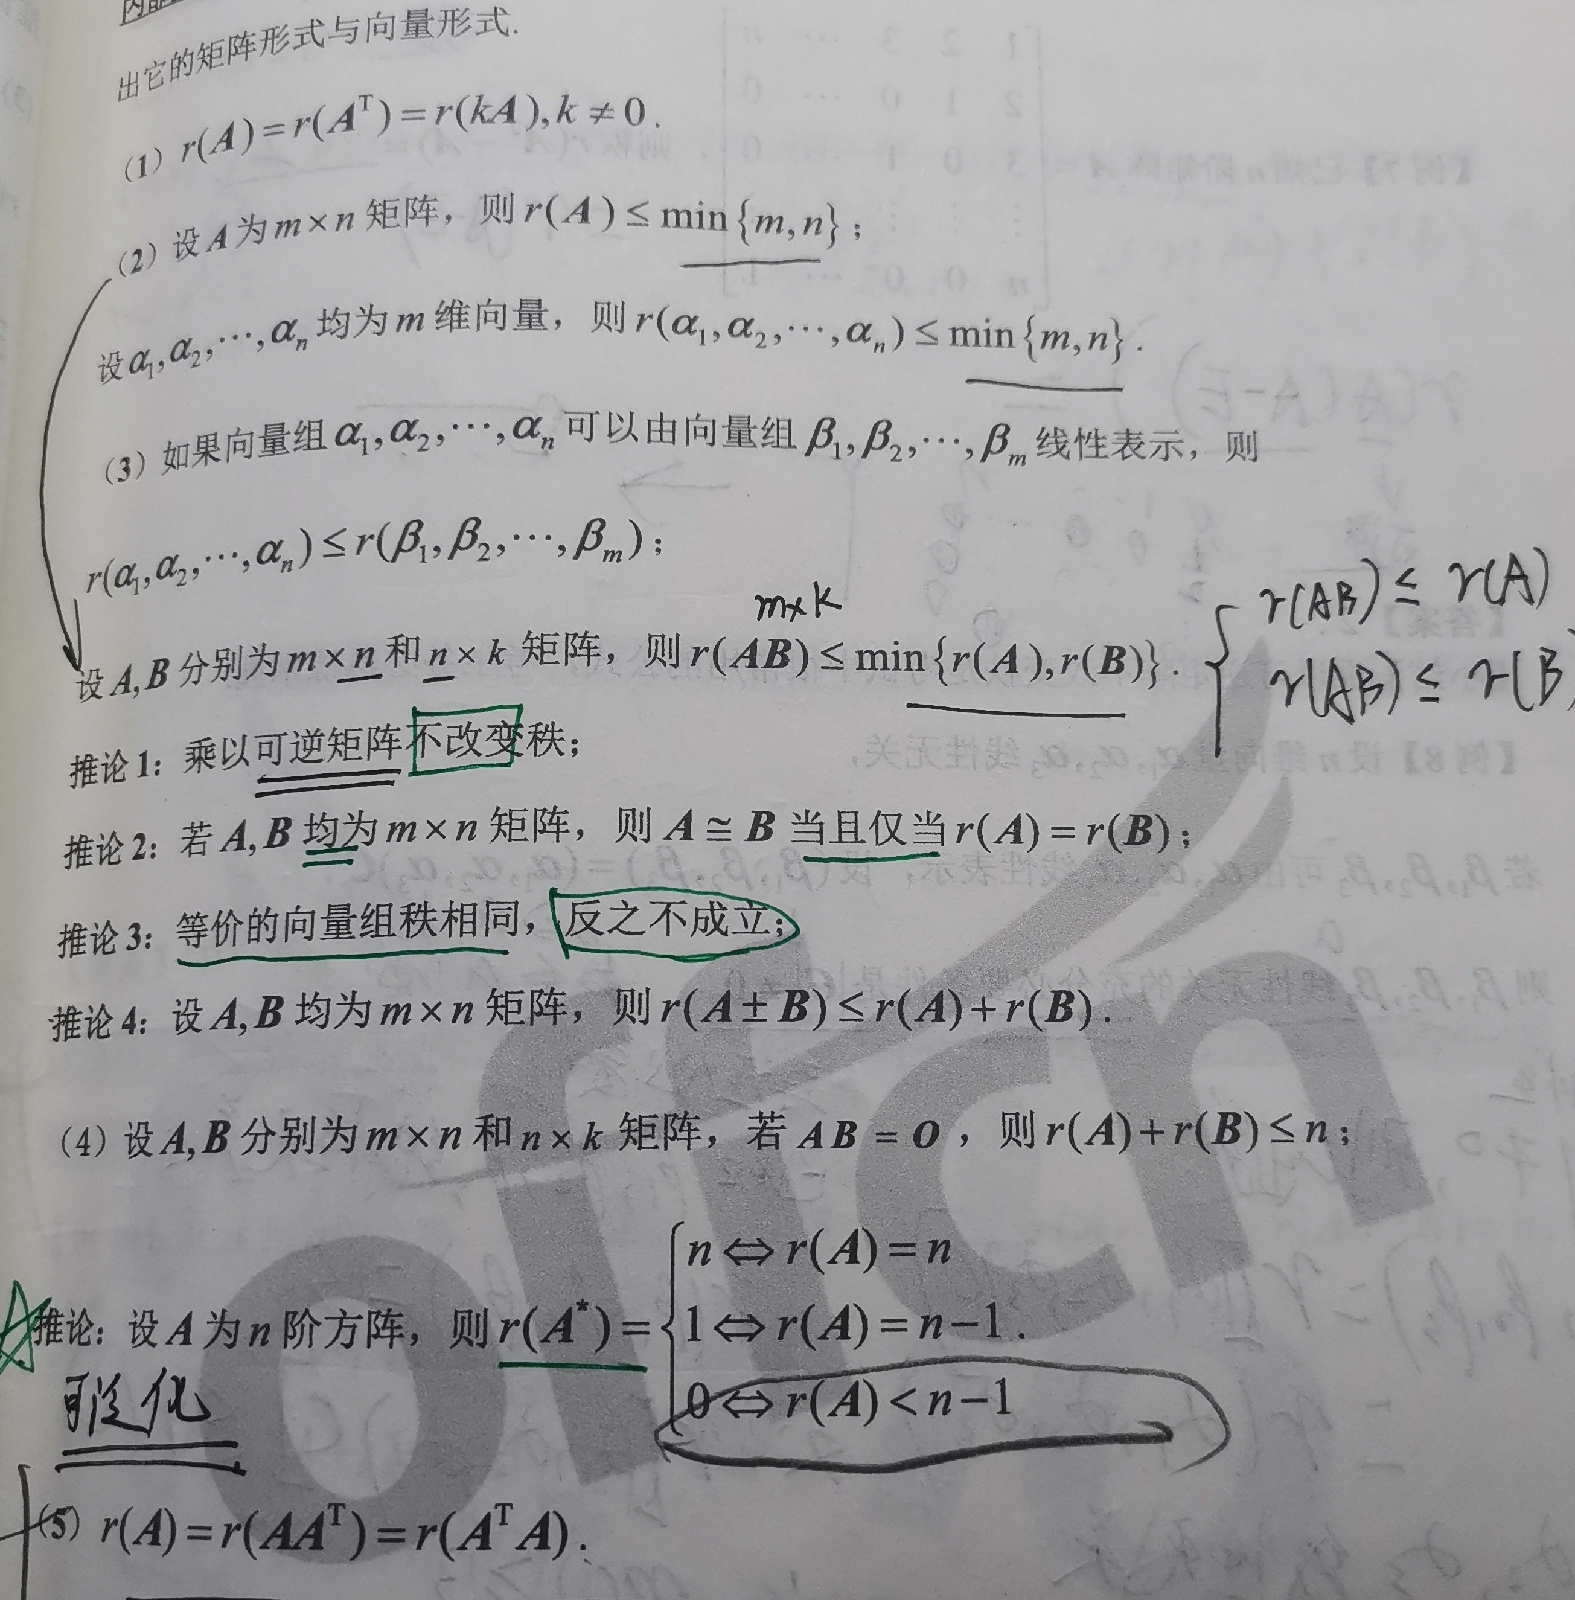 出它的矩阵形式与向量形式.
(1) r(A)=r(Aᵀ)=r(kA),k≠0.
(2) 设A为m×n矩阵，则r(A)≤min{m,n}；
设α₁,α₂,⋯,αₙ均为m维向量，则r(α₁,α₂,⋯,αₙ)≤min{m,n}.
(3) 如果向量组α₁,α₂,⋯,αₙ可以由向量组β₁,β₂,⋯,βₘ线性表示，则
r(α₁,α₂,⋯,αₙ)≤r(β₁,β₂,⋯,βₘ)；
m×k
设A,B分别为m×n和n×k矩阵，则r(AB)≤min{r(A),r(B)}.
r(AB)≤r(A)
r(AB)≤r(B)
推论1：乘以可逆矩阵不改变秩；
推论2：若A,B均为m×n矩阵，则A≅B当且仅当r(A)=r(B)；
推论3：等价的向量组秩相同，反之不成立；
推论4：设A,B均为m×n矩阵，则r(A±B)≤r(A)+r(B).
(4) 设A,B分别为m×n和n×k矩阵，若AB=O，则r(A)+r(B)≤n；
n⇔r(A)=n
推论：设A为n阶方阵，则r(A*)={1⇔r(A)=n−1.
0⇔r(A)<n−1
(5) r(A)=r(AAᵀ)=r(AᵀA).
offcn